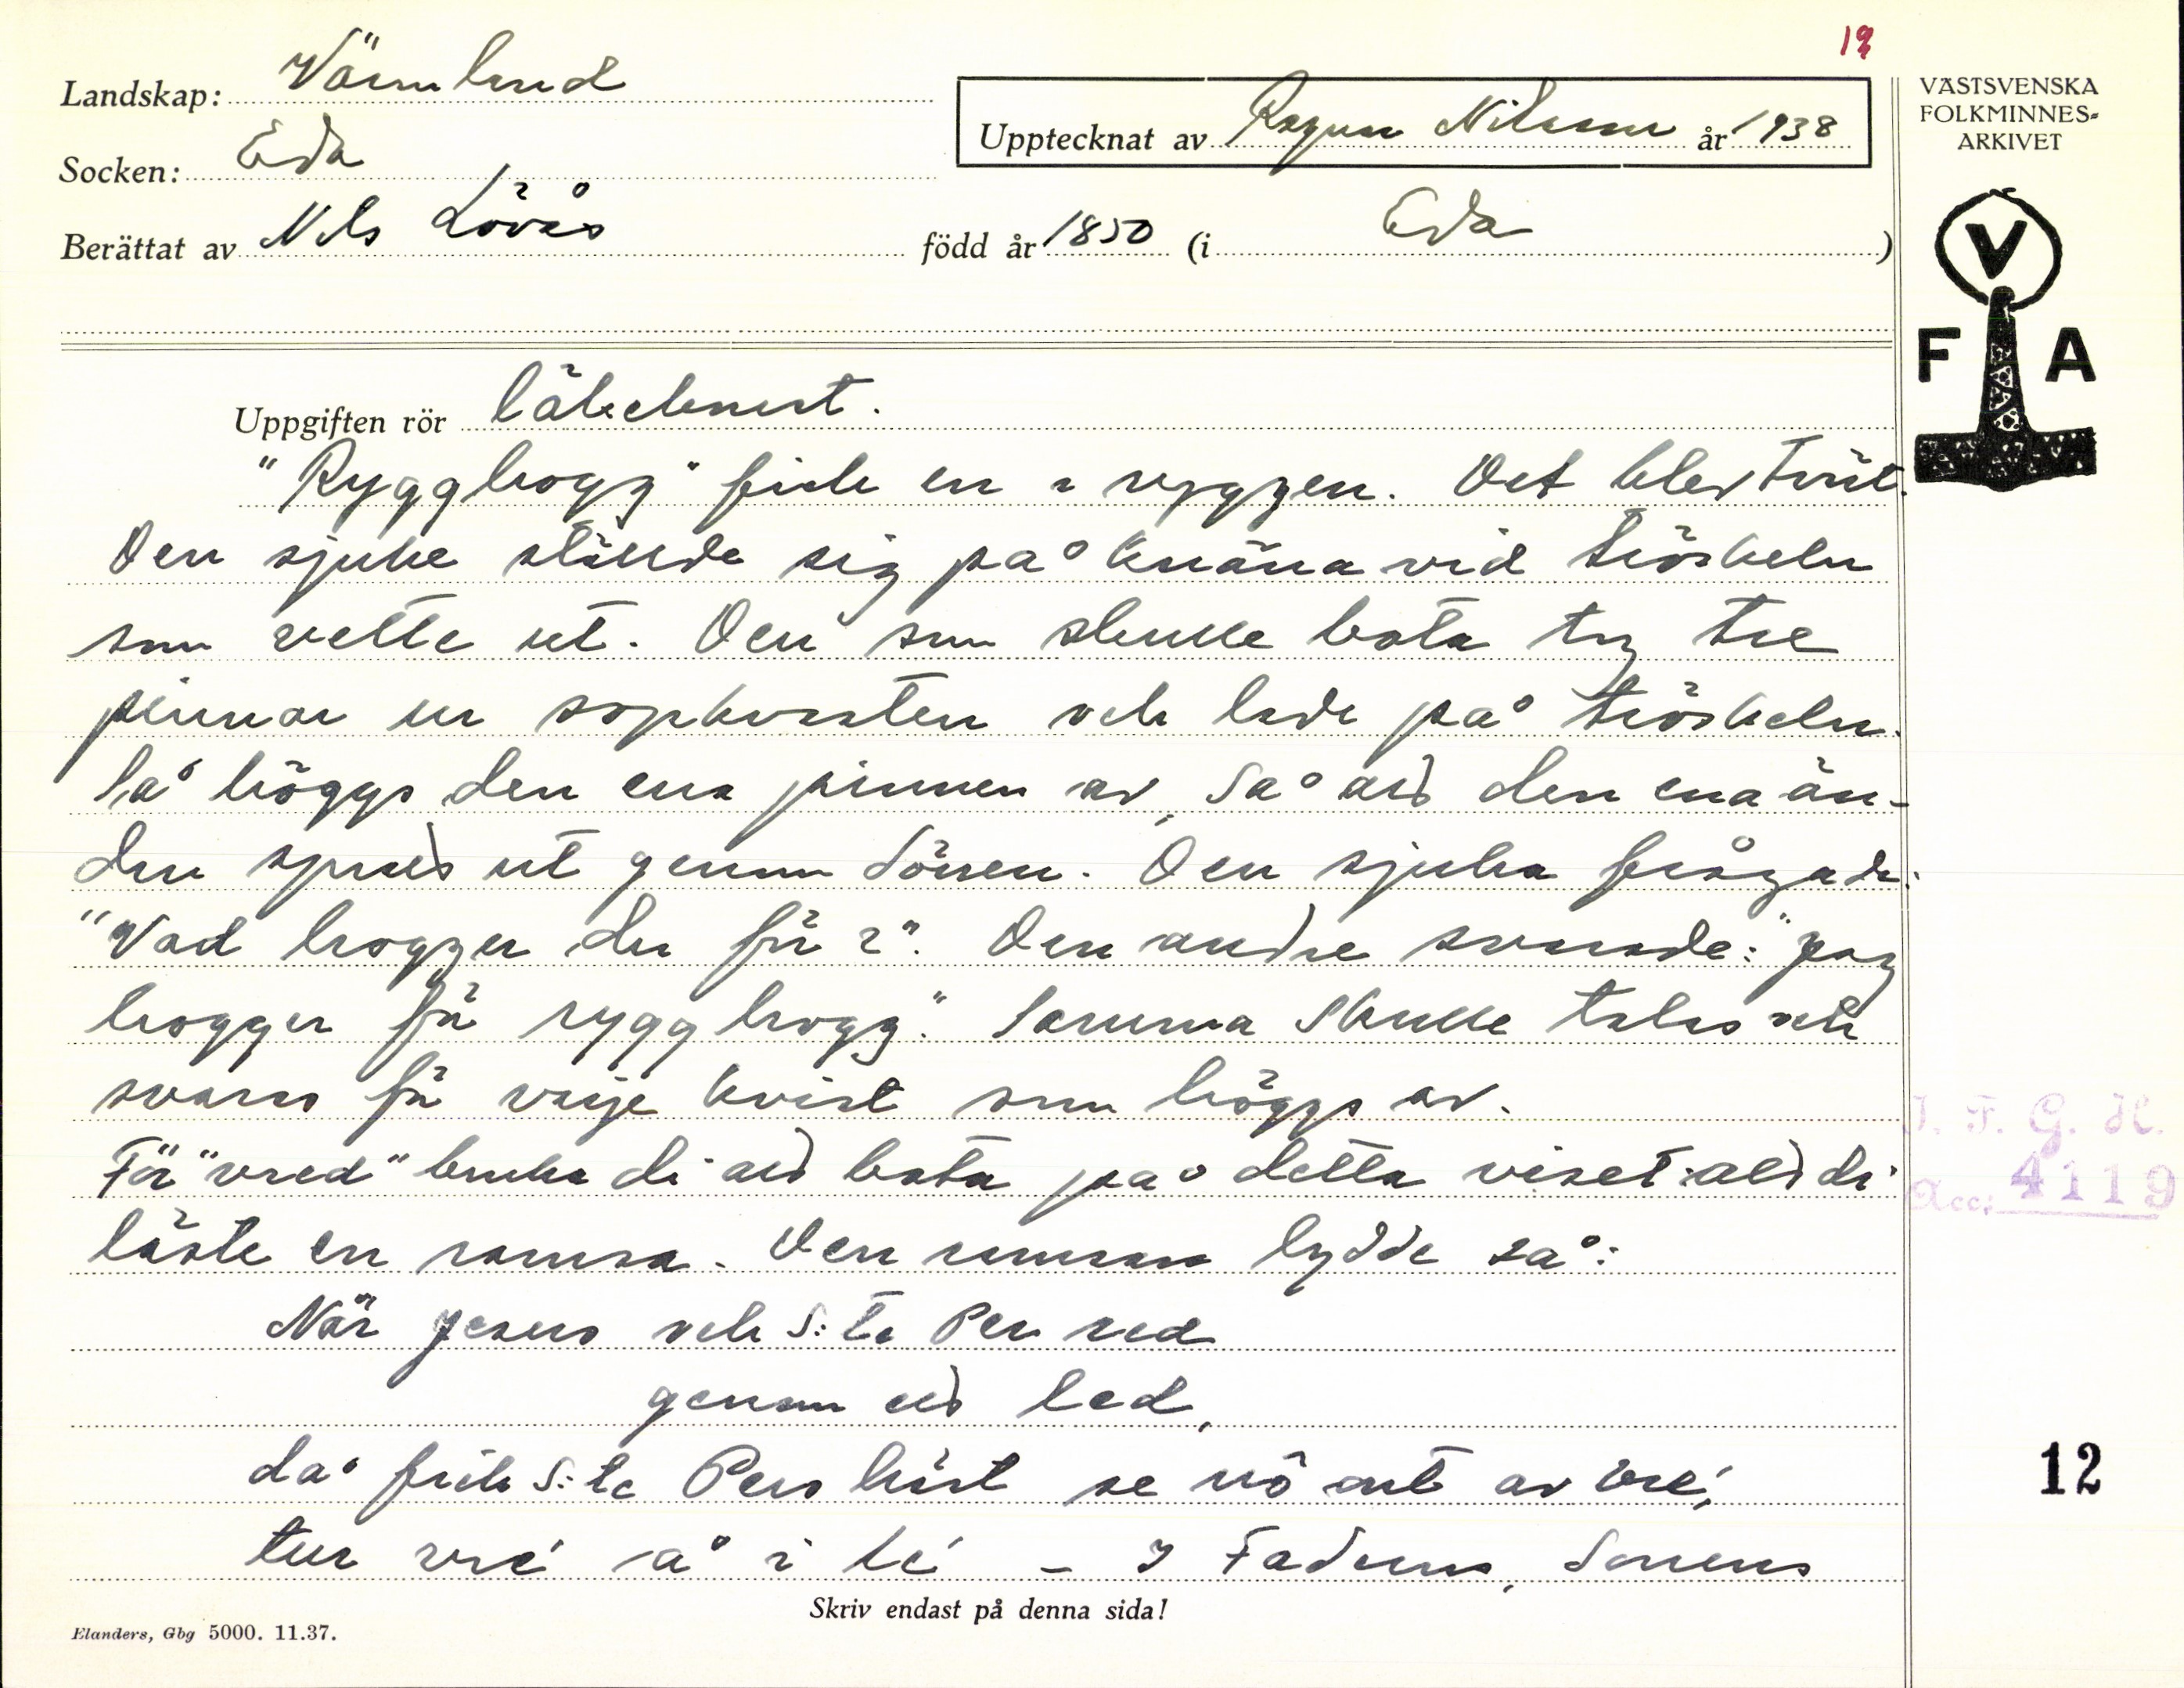 Landskap: Värmland
Socken: Eda
Berättat av Nils Lövås född år 1850 (i Eda )
Upptecknat av Ragnar Nilsson år 1938
VÄSTSVENSKA
FOLKMINNES-
ARKIVET
V
F A
Uppgiften rör läkekonst.
"Rygghogg" fick en i ryggen. Det blev tvät.
Den sjuke ställde sig på knäna vid tröskeln
som vette ut. Den som skulle bota tog tre
pinnar ur sopkvasten och lade på tröskeln.
Så höggs den ena pinnen av, så att den ena än-
den sprats ut genom dörren. Den sjuka frågade:
"Vad hogger du för?". Den andre svarade: "Jag
hogger för rygghogg." Samma skulle talas och
svaras för varje kvist som höggs av.
För "vred" bruka di att bota på detta viset att di
läste en ramsa. Den ramsan lydde så:
När Jesus och S:te Per red
genom ett led,
då fick S:te Pers häst se nô ont av vre',
tur vre' å i le' – I Faderns, Sonens
Skriv endast på denna sida!
Elanders, Gbg 5000. 11.37.
I. F. G. H.
Acc: 4119
12